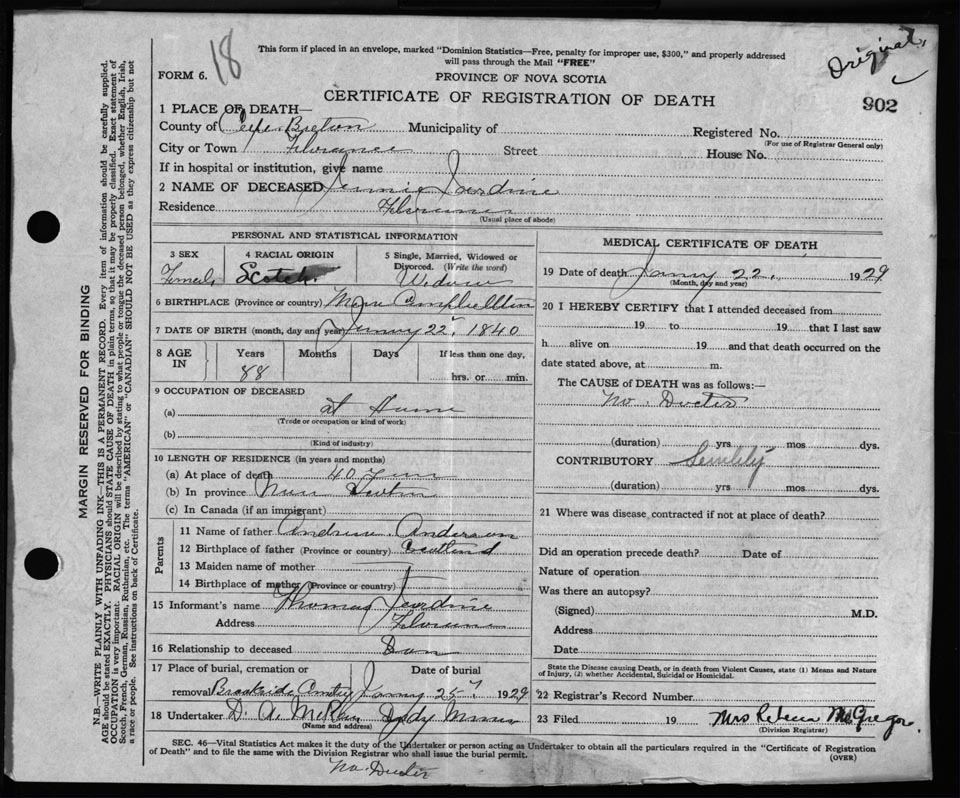 18
Original
This form if placed in an envelope, marked "Dominion Statistics—Free, penalty for improper use, $300," and properly addressed
will pass through the Mail "FREE"
FORM 6.
PROVINCE OF NOVA SCOTIA
CERTIFICATE OF REGISTRATION OF DEATH
902
1 PLACE OF DEATH—
County of Cape Breton Municipality of
Registered No.
(For use of Registrar General only)
City or Town Florence Street House No.
If in hospital or institution, give name
2 NAME OF DECEASED Jennie Jardine
Residence Florence
(Usual place of abode)
PERSONAL AND STATISTICAL INFORMATION
3 SEX
Female
4 RACIAL ORIGIN
Scotch
5 Single, Married, Widowed or Divorced. (Write the word)
Widow
6 BIRTHPLACE (Province or country) New Campbellton
7 DATE OF BIRTH (month, day and year) 22 1840
8 AGE IN
Years
88
Months
Days
If less than one day,
hrs. or min.
9 OCCUPATION OF DECEASED
(a) at Home
(Trade or occupation or kind of work)
(b)
(Kind of industry)
10 LENGTH OF RESIDENCE (in years and months)
(a) At place of death 40 Years
(b) In province
(c) In Canada (if an immigrant)
Parents
11 Name of father Andrew Anderson
12 Birthplace of father (Province or country) Scotland
13 Maiden name of mother
14 Birthplace of mother (Province or country)
15 Informant's name Thomas Jardine
Address Florence
16 Relationship to deceased Son
17 Place of burial, cremation or
Date of burial
removal Brookside Cemtry 25 1929
18 Undertaker D. A. Sydney Mines
(Name and address)
MEDICAL CERTIFICATE OF DEATH
19 Date of death 22 1929
(Month, day and year)
20 I HEREBY CERTIFY that I attended deceased from
19 to 19 that I last saw
h alive on 19 and that death occurred on the
date stated above, at m.
The CAUSE of DEATH was as follows:—
No. Doctor
(duration) yrs. mos dys.
CONTRIBUTORY Senility
(duration) yrs mos dys.
21 Where was disease contracted if not at place of death?
Did an operation precede death? Date of
Nature of operation
Was there an autopsy?
(Signed) M.D.
Address
Date
State the Disease causing Death, or in death from Violent Causes, state (1) Means and Nature
of Injury, (2) whether Accidental, Suicidal or Homicidal.
22 Registrar's Record Number
23 Filed 19 Mrs Rebecca McGregor
(Division Registrar)
SEC. 46—Vital Statistics Act makes it the duty of the Undertaker or person acting as Undertaker to obtain all the particulars required in the "Certificate of Registration
of Death" and to file the same with the Division Registrar who shall issue the burial permit.
(OVER)
No. Doctor
MARGIN RESERVED FOR BINDING
N.B.—WRITE PLAINLY WITH UNFADING INK—THIS IS A PERMANENT RECORD. Every item of information should be carefully supplied.
AGE should be stated EXACTLY. PHYSICIANS should STATE CAUSE OF DEATH in plain terms, so that it may be properly classified. Exact statement of
OCCUPATION is very important. RACIAL ORIGIN will be described by stating to what people or tongue the deceased person belonged, whether English, Irish,
Scotch, French, German, Russian, Ruthenian, etc. The terms "AMERICAN" or "CANADIAN" SHOULD NOT BE USED as they express citizenship but not
a race or people. See instructions on back of Certificate.